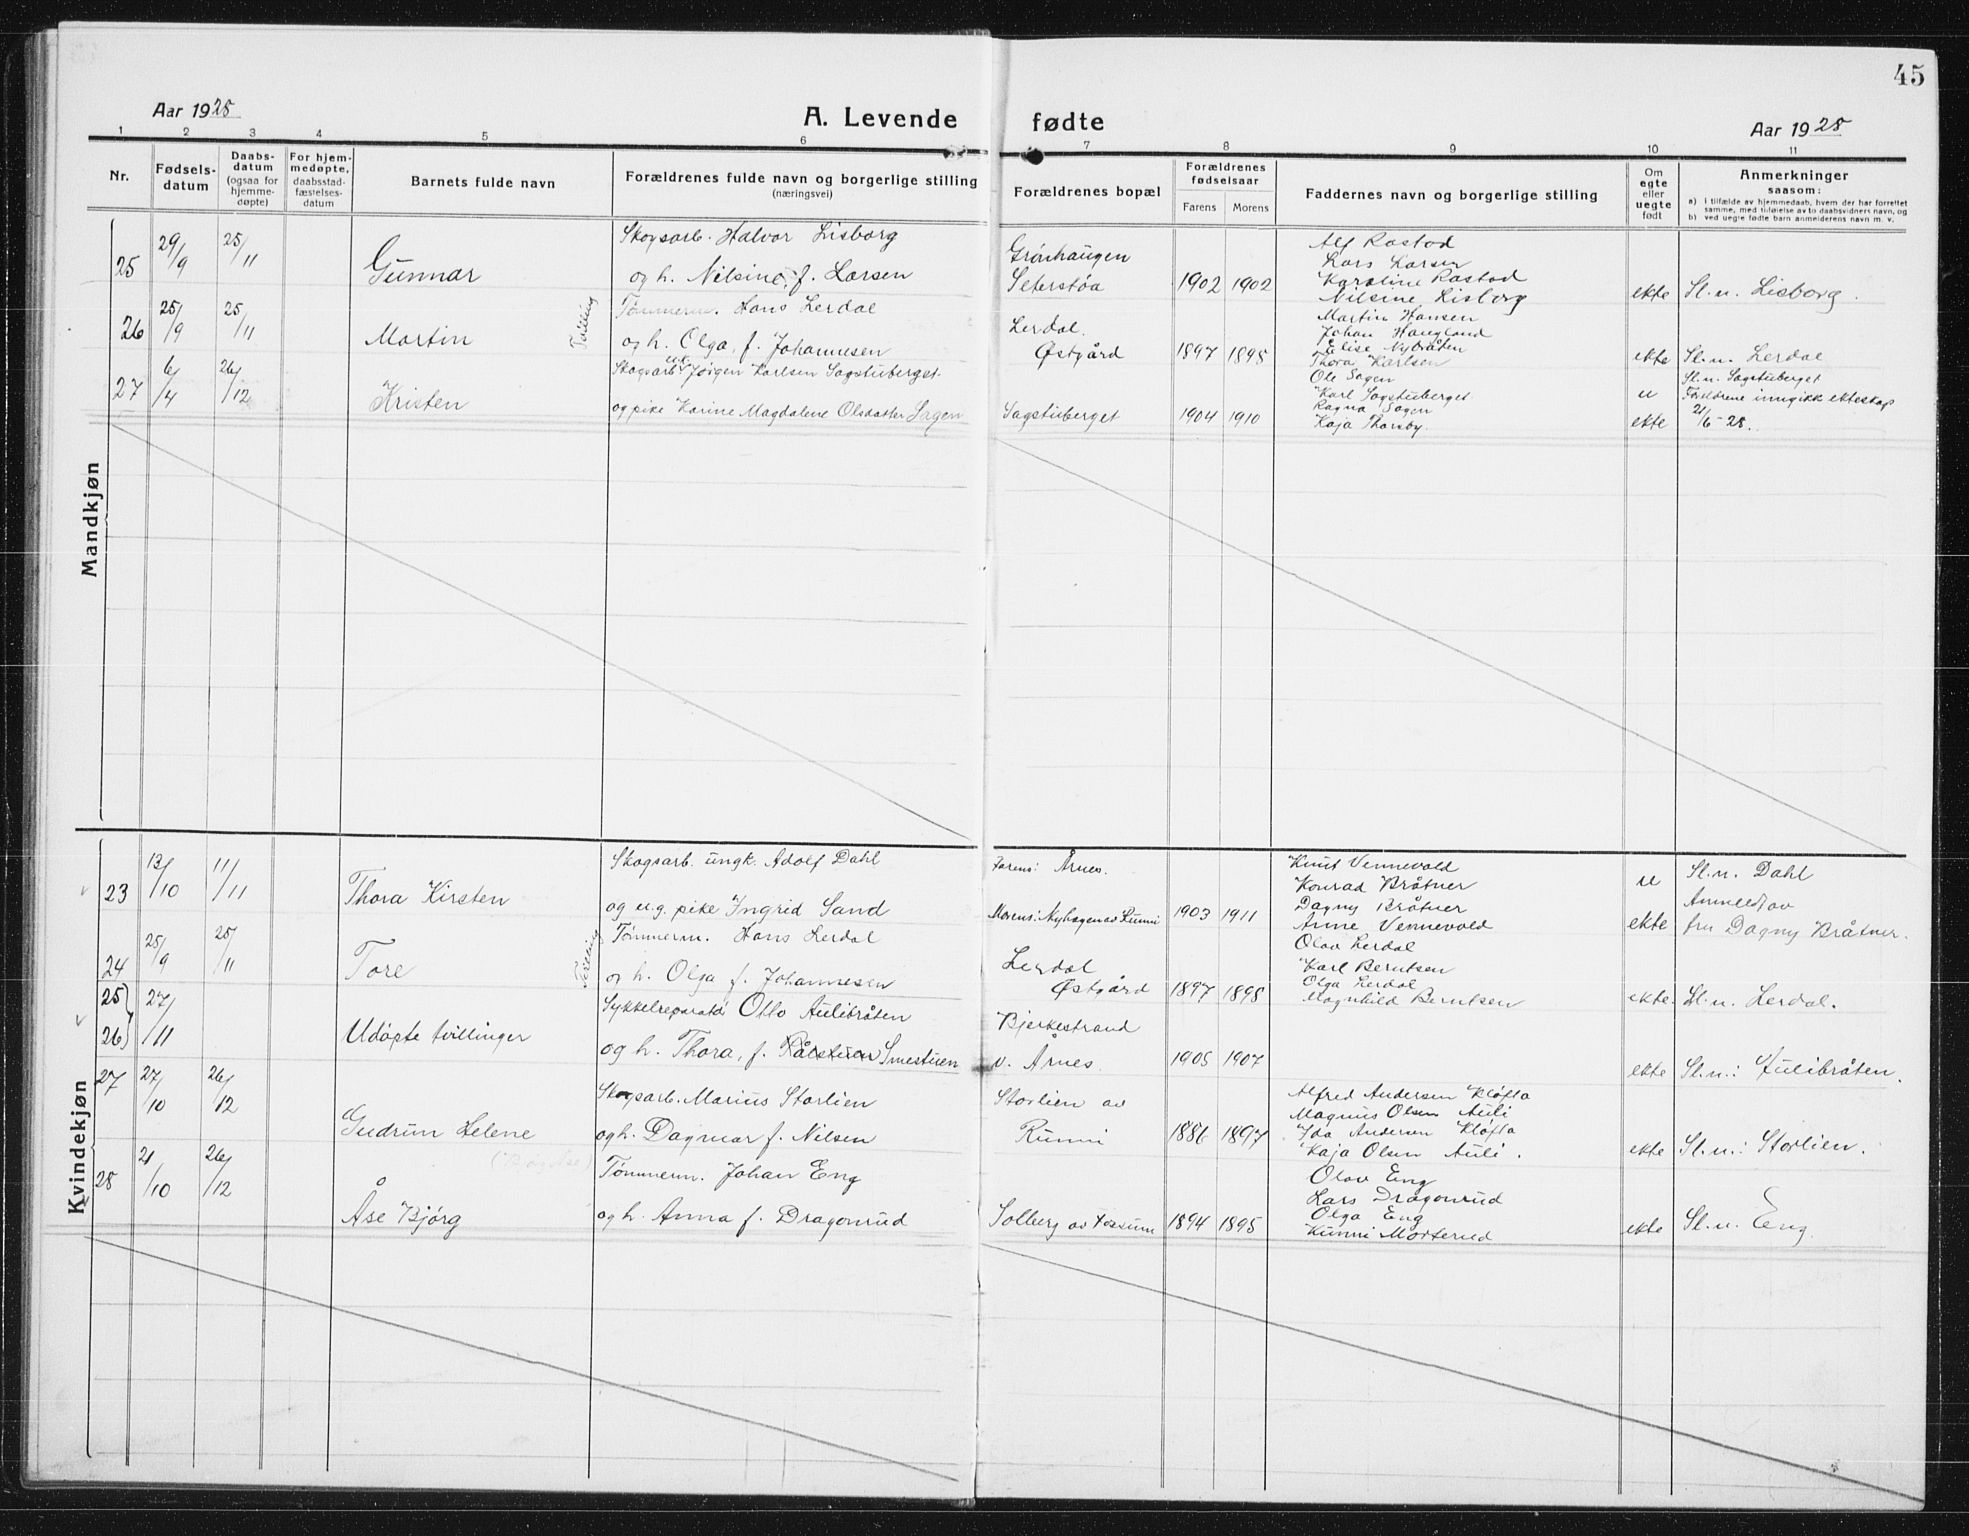 45
Aar 1928
A. Levende fødte
Aar 1928
1 2 3 4 5 6 7 8 9 10 11
Nr.
Fødsels-
datum
Daabs-
datum
(ogsaa for
hjemme-
døpte)
For hjem-
medøpte,
daabsstad-
fæstelses-
datum
Barnets fulde navn
Forældrenes fulde navn og borgerlige stilling
(næringsvei)
Forældrenes bopæl
Forældrenes
fødselsaar
Farens Morens
Faddernes navn og borgerlige stilling
Om
egte
eller
uegte
født
Anmerkninger
saasom:
a) i tilfælde av hjemmedaab, hvem der har forrettet
samme, med tilføielse av to daabsvidners navn, og
b) ved uegte fødte barn anmelderens navn m. v.
Mandkjøn
25
29/9
25/11
Gunnar
Skogsarb. Halvor Lisborg
og h. Nilsine, f. Larsen
Grønhaugen
Seterstøa
1902 1902
Alf Rastad
Lars Larsen
Karoline Rastad
Nilsine Lisborg
ekte
Sl.n. Lisborg.
26
25/9
25/11
Martin
Tvilling
Tømmerm. Hans Lerdal
og h. Olga, f. Johannesen
Lerdal.
Østgård
1897 1898
Martin Hansen
Johan Haugland
Elise Nybråten
Thora Karlsen
ekte
Sl.n. Lerdal
27
6/4
26/12
Kristen
Skogsarb. u.k. Jørgen Karlsen Sagstuberget
og pike Karine Magdalene Olsdatter Sagen
Sagstuberget
1904 1910
Ole Sagen
Karl Sagstuberget
Ragna Sagen
Kaja Thorsby.
u
ekte
Sl.n. Sagstuberget
Foreldrene inngikk ekteskap
21/6-28.
Kvindekjøn
23
13/10
11/11
Thora Kirsten
Skogsarb. ungk. Adolf Dahl
og u.g. pike Ingrid Sand
Farens: Årnes.
Morens: Nyhagen av Runni
1903 1911
Knut Vennevold
Konrad Bråtner
Dagny Bråtner
Anne Vennevold
u
ekte
Sl.n. Dahl
Anmeldt av
fru Dagny Bråtner.
24
25/9
25/11
Tore
Tvilling
Tømmerm. Hans Lerdal
og h. Olga f. Johannesen
Lerdal
Østgård
1897 1898
Olav Lerdal
Karl Berntsen
Olga Lerdal
Magnhild Berntsen
ekte.
Sl.n. Lerdal.
25)
26)
27/11
Udøpte tvillinger
Sykkelreparatør Otto Aulibråten
og h. Thora, f. Smestuen
Bjerkestrand
v. Årnes.
1905 1907
ekte
Sl.n.: Aulibråten.
27
27/10
26/12
Gudrun Helene
Skogsarb. Marius Storlien
og h. Dagmar f. Nilsen
Storlien av
Runni
1886 1897
Alfred Andersen Kløfta
Magnus Olsen Auli
Ida Andersen Kløfta
Kaja Olsen Auli.
ekte
Sl.n.: Storlien.
28
21/10
26/12
Åse Bjørg
Tømmerm. Johan Eng
og h. Anna f. Dragonrud
Solberg av Fossum
1894 1895
Olav Eng
Lars Dragonrud
Olga Eng
Kunni Morterud
ekte
Sl.n. Eng